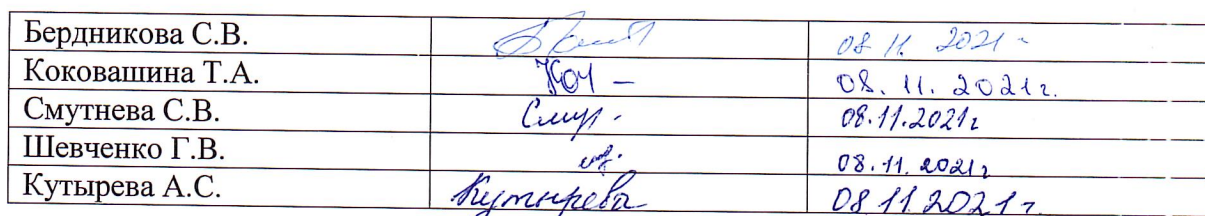 Бердникова С.В. 08 11. 2021 г
Коковашина Т.А. 08. 11. 2021г.
Смутнева С.В. Смут. 08.11.2021г
Шевченко Г.В. 08.11.2021г
Кутырева А.С. Кутырева 08.11.2021г